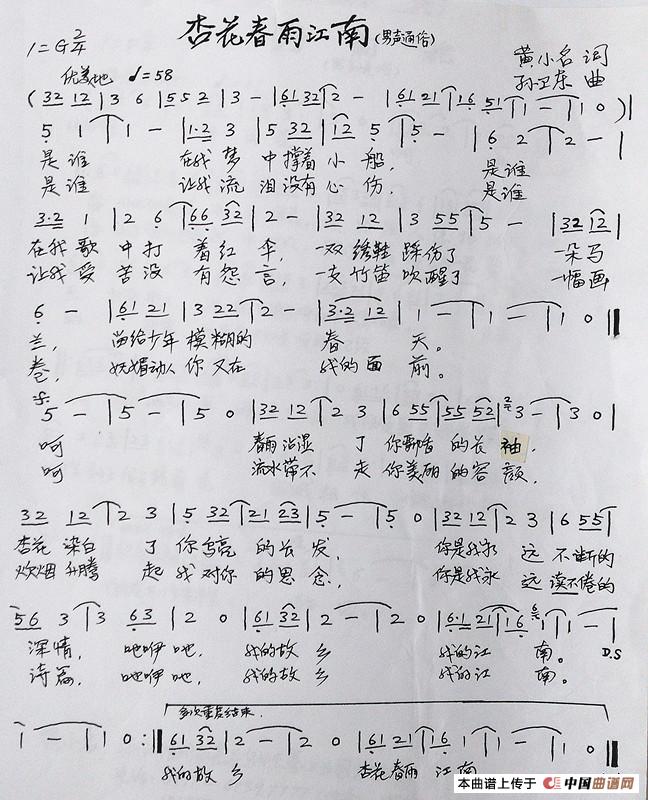 杏花春雨江南(男声通俗)
1=G 2/4
黄小名 词
优美地 ♩=58
孙卫东 曲
(32 12|3 6|55 2|3 -|61 32|2 -|61 21|16 51|1 -|1 0)|
5 1|1 -|1·2 3|5 32|12 5|5 -|6 2|2 -|
是谁 在我梦 中撑着小船, 是谁
是谁 让我流 泪没有心伤, 是谁
3·2 1|2 6|66 32|2 -|32 12|3 55|5 -|32 12|
在我歌 中打 着红伞, 一双绣鞋踩伤了 一朵马
让我受 苦没 有怨言, 一支竹笛吹醒了 一幅画
6 -|61 21|3 22|2 -|3·2 12|1 -|1 -|1 0‖
兰, 留给少年模糊的 春 天。
卷, 妩媚动人你又在 我的面 前。
5 -|5 -|5 0|32 12|2 3|6 55|55 52|3 -|3 0|
呵 春雨沾湿 了 你飘香 的长 袖,
呵 流水带不 走 你美丽 的容 颜,
32 12|2 3|5 32|21 23|5 -|5 0|32 12|2 3|6 55|
杏花染白 了 你乌亮 的长发, 你是我永 远 不断的
炊烟升腾 起 我对你 的思念, 你是我永 远 读不倦的
56 3|3 63|2 0|61 32|2 -|2 0|6·1 21|16 1|1 -|
深情, 吔咿吔, 我的故 乡 我的江 南。 D.S
诗篇, 吔咿吔, 我的故 乡 我的江 南。
多次重复结束.
1 -|1 0:‖61 32|2 -|2 0|61 21|16 1|1 -|1 0‖
我的故 乡 杏花春雨 江 南
本曲谱上传于 中国曲谱网